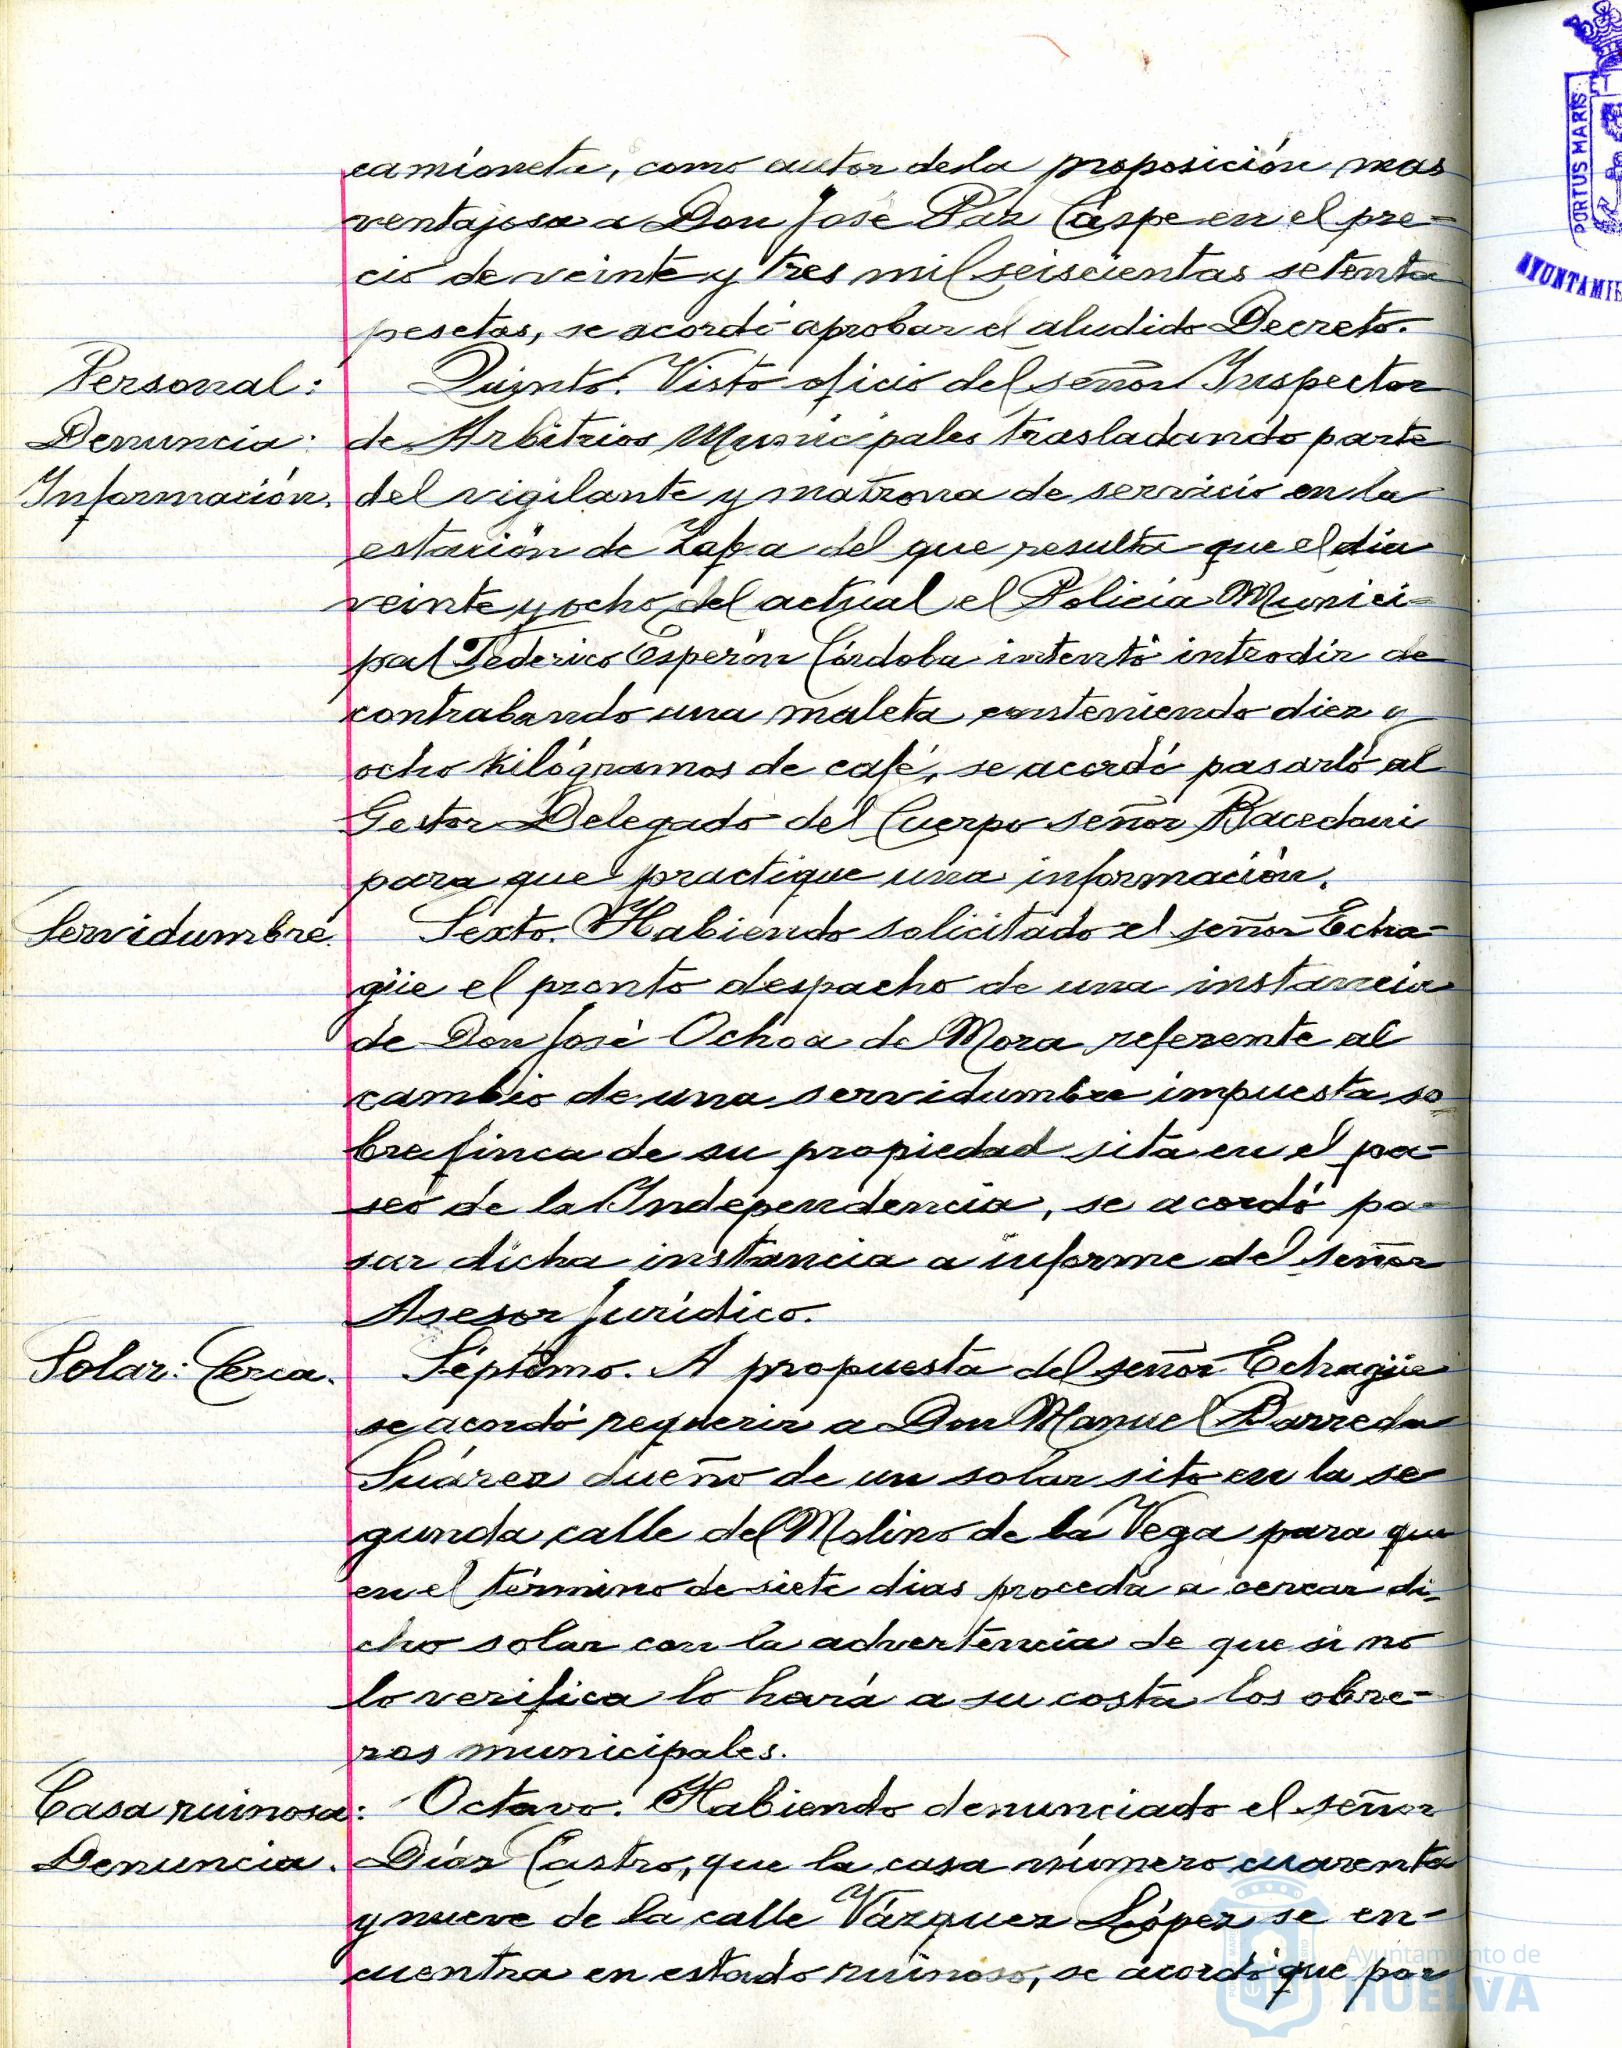 camioneta, como autor de la proposición mas
ventajosa a Don José Paz Caspe en el pre-
cio de veinte y tres mil seiscientas setenta
pesetas, se acordó aprobar el aludido Decreto.
Personal:
Denuncia:
Información.
Quinto. Visto oficio del señor Inspector
de Arbitrios Municipales trasladando parte
del vigilante y matrona de servicio en la
estación de Zafra del que resulta que el dia
veinte y ocho del actual el Policia Munici-
pal Federico Esperón Córdoba intentó introdir de
contrabando una maleta conteniendo diez y
ocho kilógramos de café, se acordó pasarlo al
Gestor Delegado del Cuerpo señor
para que practique una información.
Servidumbre.
Sexto. Habiendo solicitado el señor Echa-
güe el pronto despacho de una instancia
de Don José Ochoa de Mora referente al
cambio de una servidumbre impuesta so
bre finca de su propiedad sita en el pa-
seo de la Independencia, se acordó pa-
sar dicha instancia a informe del señor
Asesor Jurídico.
Solar: Cerca.
Séptimo. A propuesta del señor Echagüe
se acordó requerir a Don Manuel Barreda
Suárez dueño de un solar sito en la se
gunda calle del Molino de la Vega para que
en el término de siete dias proceda a cercar di-
cho solar con la advertencia de que si no
lo verifica lo hará a su costa los obre-
ros municipales.
Casa ruinosa:
Denuncia.
Octavo. Habiendo denunciado el señor
Díaz Castro, que la casa número cuarenta
y nueve de la calle Vázquez López se en-
cuentra en estado ruinoso, se acordó que por
PORTUS MARIS
AYUNTAMIE
Ayuntamiento de
HUELVA